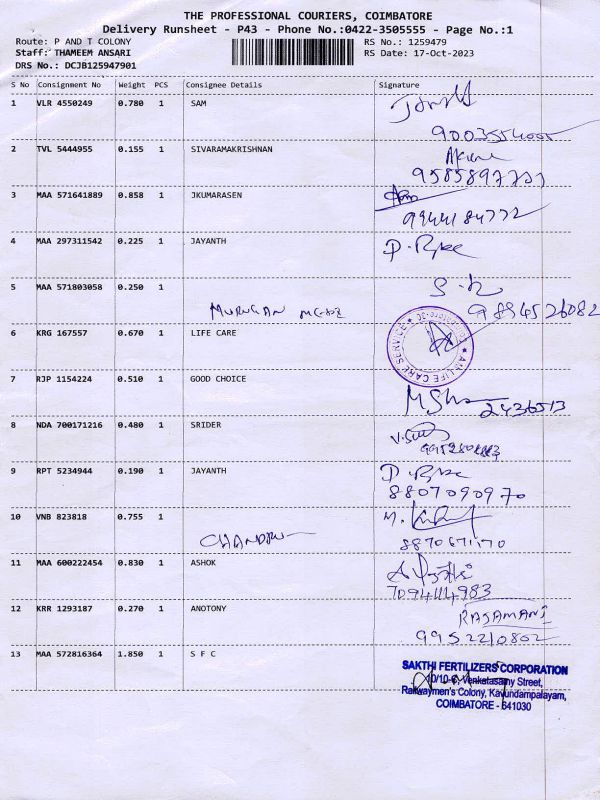 THE PROFESSIONAL COURIERS, COIMBATORE
Delivery Runsheet - P43 - Phone No.:0422-3505555 - Page No.:1
Route: P AND T COLONY
RS No.: 1259479
Staff: THAMEEM ANSARI
RS Date: 17-Oct-2023
DRS No.: DCJB125947901
S No Consignment No Weight PCS Consignee Details Signature
1 VLR 4550249 0.780 1 SAM
2 TVL 5444955 0.155 1 SIVARAMAKRISHNAN
3 MAA 571641889 0.858 1 JKUMARASEN
9944184772
4 MAA 297311542 0.225 1 JAYANTH
5 MAA 571803058 0.250 1
MURUGAN
9894526082
6 KRG 167557 0.670 1 LIFE CARE
LIFE CARE SERVICE
7 RJP 1154224 0.510 1 GOOD CHOICE
2436513
8 NDA 700171216 0.480 1 SRIDER
9 RPT 5234944 0.190 1 JAYANTH
8807090970
10 VNB 823818 0.755 1
CHANDRU
11 MAA 600222454 0.830 1 ASHOK
7094414983
12 KRR 1293187 0.270 1 ANOTONY
RAJAMANI
9952210802
13 MAA 572816364 1.850 1 S F C
SAKTHI FERTILIZERS CORPORATION
Venketasamy Street,
Railwaymen's Colony, Kavundampalayam,
COIMBATORE - 641030